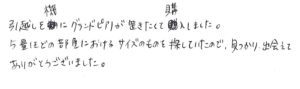 機 購
引越しを機にグランドピアノが置きたくて購入しました。
5畳ほどの部屋におけるサイズのものを探していたので、見つかり出会えて
ありがとうございました。